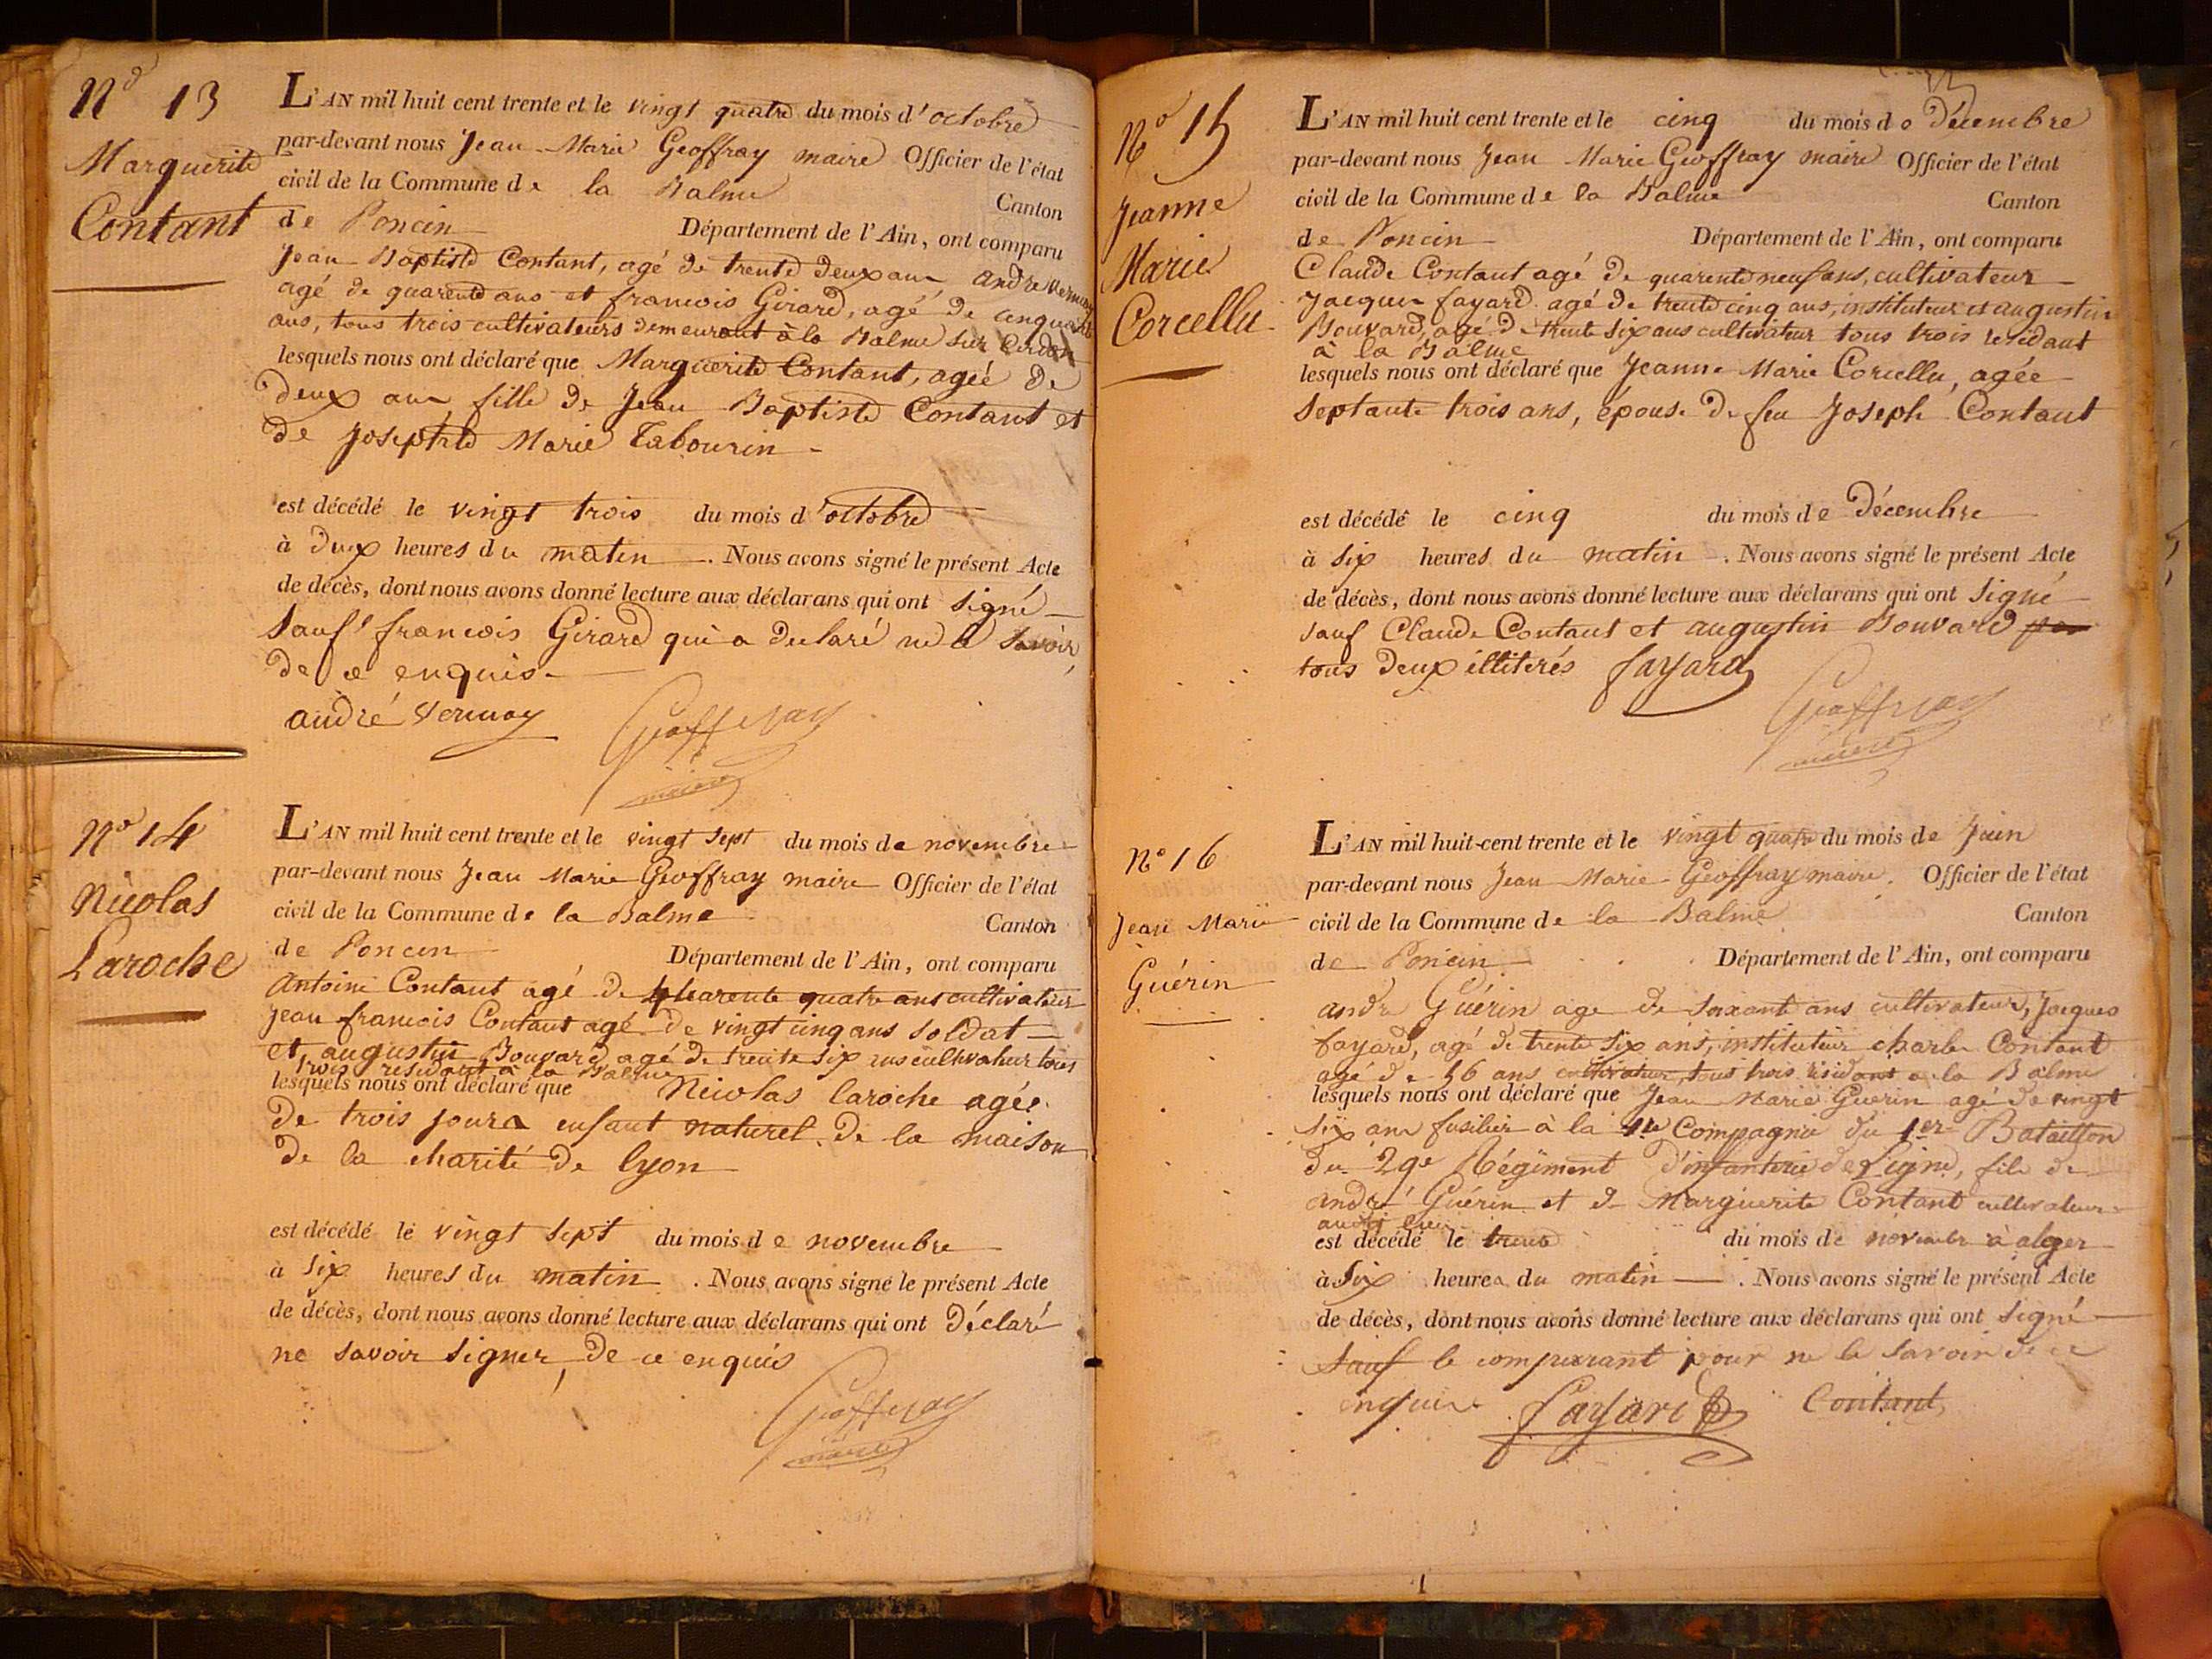 No 13
Marguerite
Contant
L'AN mil huit cent trente et le vingt quatre du mois d'octobre
par-devant nous Jean Marie Geoffray maire Officier de l'état
civil de la Commune de la Balme Canton
de Poncin Département de l'Ain, ont comparu
Jean Baptiste Contant, agé de trente deux ans andré Vernay
agé de quarente ans et francois Girard, agé de cinquante
ans, tous trois cultivateurs demeurant à la Balme sur Cerdon
lesquels nous ont déclaré que Marguerite Contant, ageé de
deux ans fille de Jean Baptiste Contant et
de Josephte Marie Tabourin
est décédé le vingt trois du mois d'octobre
à deux heures du matin. Nous avons signé le présent Acte
de décès, dont nous avons donné lecture aux déclarans qui ont signé
sauf francois Girard qui a declaré ne le savoir,
de ce enquis.
andré Vernay Geoffray
maire
No 14
Nicolas
Laroche
L'AN mil huit cent trente et le vingt sept du mois de novembre
par-devant nous Jean Marie Geoffray maire Officier de l'état
civil de la Commune de la Balme Canton
de Poncin Département de l'Ain, ont comparu
Antoine Contant agé de quarente quatre ans cultivateur
jean francois Contant agé de vingt cinq ans soldat
et augustin Bouvard agé de trente six ans cultivateur tous
trois residant à la Balme
lesquels nous ont déclaré que Nicolas laroche agée
de trois jours enfant naturel de la maison
de la charité de lyon
est décédé le vingt sept du mois de novembre
à six heures du matin. Nous avons signé le présent Acte
de décès, dont nous avons donné lecture aux déclarans qui ont déclaré
ne savoir signer, de ce enquis
Geoffray
maire
No 15
Jeanne
Marie
Corcellu
L'AN mil huit cent trente et le cinq du mois de décembre
par-devant nous Jean Marie Geoffray maire Officier de l'état
civil de la Commune de la Balme Canton
de Poncin Département de l'Ain, ont comparu
Claude Contant agé de quarente neuf ans, cultivateur
Jacques fayard agé de trente cinq ans, instituteur et augustin
Bouvard, agé de trente six ans cultivateur tous trois residant
à la Balme
lesquels nous ont déclaré que Jeanne Marie Corcellu, agée
septante trois ans, épouse de feu Joseph Contant
est décédé le cinq du mois de décembre
à six heures du matin. Nous avons signé le présent Acte
de décès, dont nous avons donné lecture aux déclarans qui ont signé
sauf Claude Contant et augustin Bouvard
tous deux illiterés fayard
Geoffray
maire
No 16
Jean Marie
Guérin
L'AN mil huit-cent trente et le vingt quatre du mois de Juin
par-devant nous Jean Marie Geoffray maire. Officier de l'état
civil de la Commune de la Balme Canton
de Poncin Département de l'Ain, ont comparu
andré Guérin age de soixant ans cultivateur, Jacques
fayard, agé de trente six ans, instituteur charles Contant
agé de 56 ans cultivateur, tous trois residant a la Balme
lesquels nous ont déclaré que Jean Marie Guerin agé de vingt
six ans fusilier à la Compagnie du 1er Bataillon
du 29e Régiment d'infanterie de Ligne, fils de
andré Guérin et de Marguerite Contant cultivateurs
est décédé le trente du mois de novembre à alger
à six heures du matin. Nous avons signé le présent Acte
de décès, dont nous avons donné lecture aux déclarans qui ont signé
sauf le comparant pour ne le savoir de ce
enquis fayard Contant